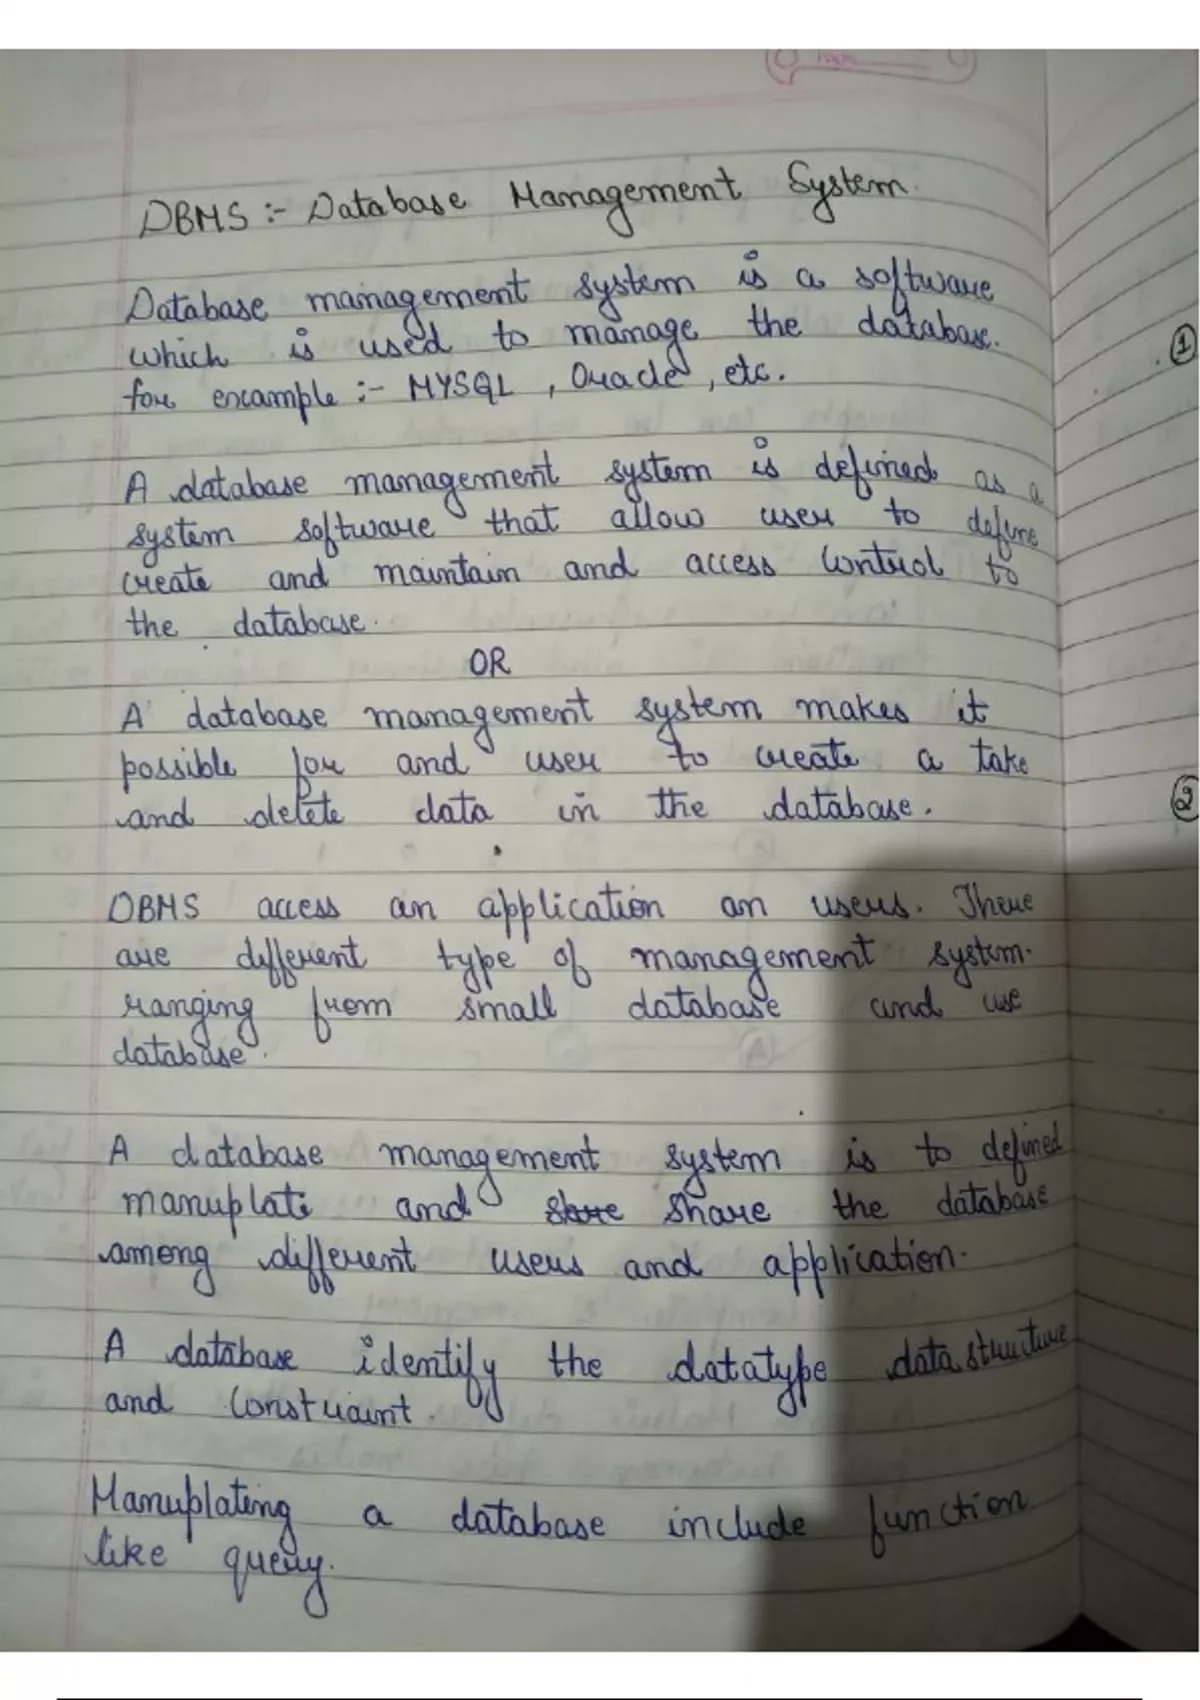 DBMS :- Database Management System.
Database management system is a software
which is used to manage the database.
for example :- MYSQL , Oracle , etc.
A database management system is defined as a
system software that allow user to define
create and maintain and access control to
the database.
OR
A database management system makes it
possible for and user to create a take
and delete data in the database.
DBMS access an application an users. There
are different type of management system.
ranging from small database and use
database.
A database management system is to defined
manuplate and store share the database
among different users and application.
A database identify the datatype data structure
and constraint.
Manuplating a database include function
like query.
1
2